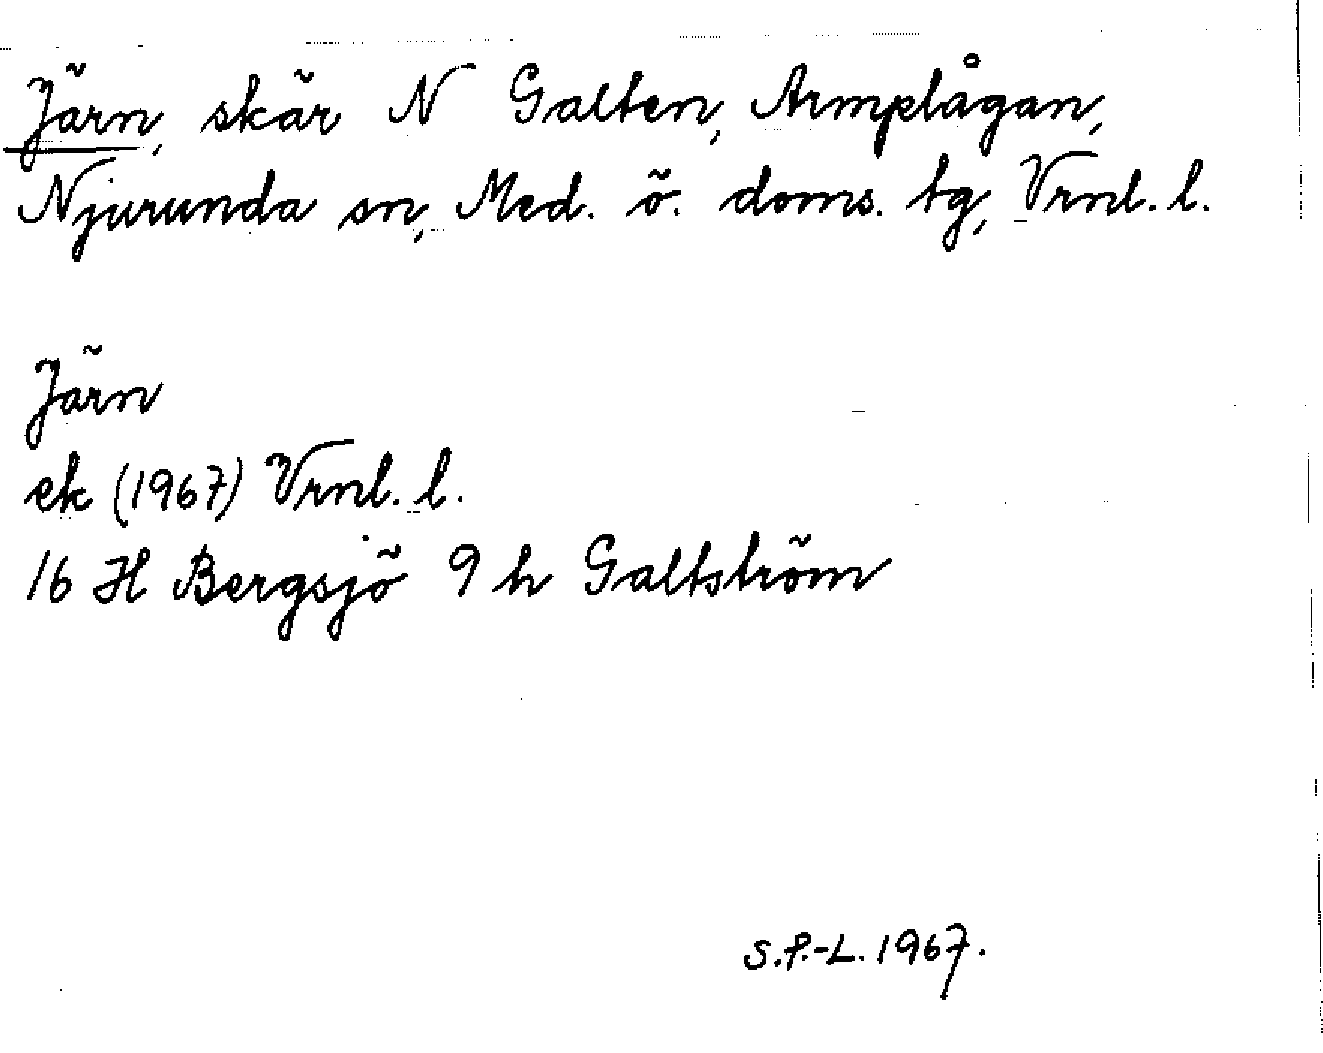 Järn, skär N Galten, Armplågan,
Njurunda sn, Med. ö. doms. tg, Vrnl. l.
Järn
ek (1967) Vrnl. l.
16 H Bergsjö 9 h Galtström
S.P.-L. 1967.